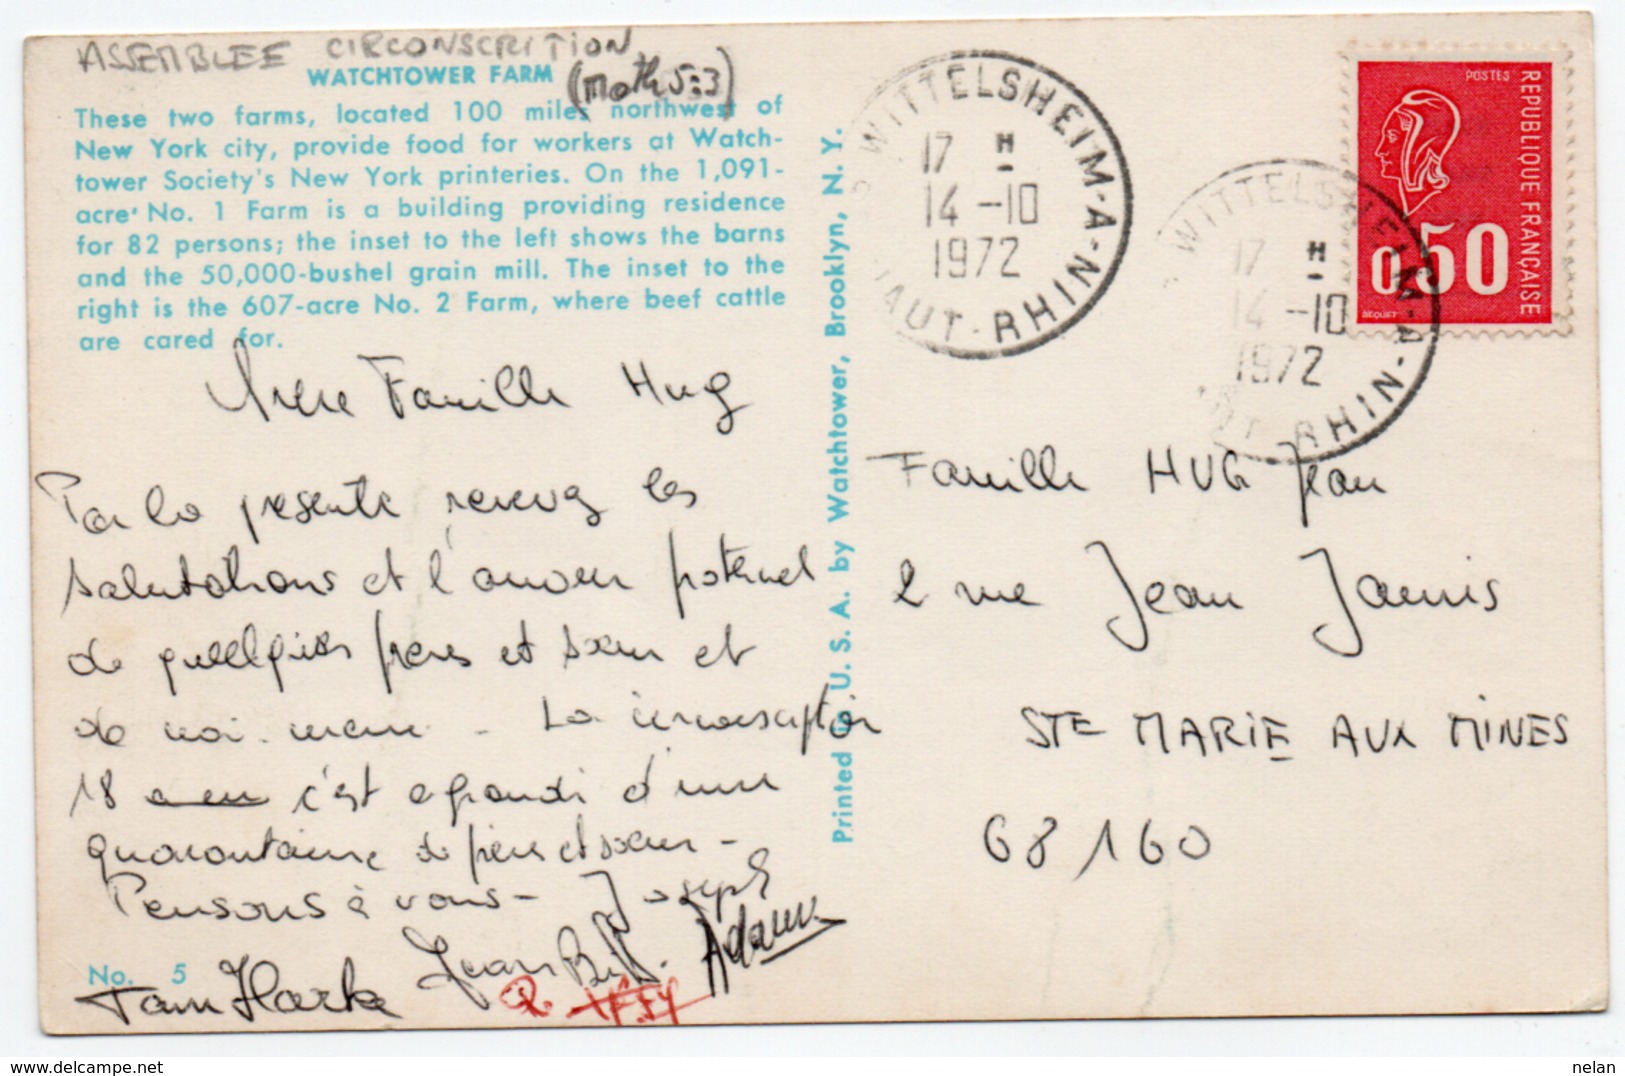 ASSEMBLEE CIRCONSCRITION
WATCHTOWER FARM
(Math 5:3)
These two farms, located 100 miles northwest of
New York city, provide food for workers at Watch-
tower Society's New York printeries. On the 1,091-
acre No. 1 Farm is a building providing residence
for 82 persons; the inset to the left shows the barns
and the 50,000-bushel grain mill. The inset to the
right is the 607-acre No. 2 Farm, where beef cattle
are cared for.
Chère Famille Hug
Par la présente recevez les
salutations et l'amour fraternel
de quelques frères et sœur et
de moi-même - La circonscription
18 c'est agrandi d'une
quarantaine de frères et sœur -
Pensons à vous - Joseph
Jean
Adam
No. 5
Printed in U. S. A. by Watchtower, Brooklyn, N. Y.
WITTELSHEIM-A-N
17 H
14 -10
1972
HAUT-RHIN
WITTELSHEIM-A-N
17 H
14 -10
1972
HAUT-RHIN
POSTES
REPUBLIQUE FRANÇAISE
0,50
BEQUET
Famille HUG Jean
2 rue Jean Jaurès
STE MARIE AUX MINES
68160
nelan